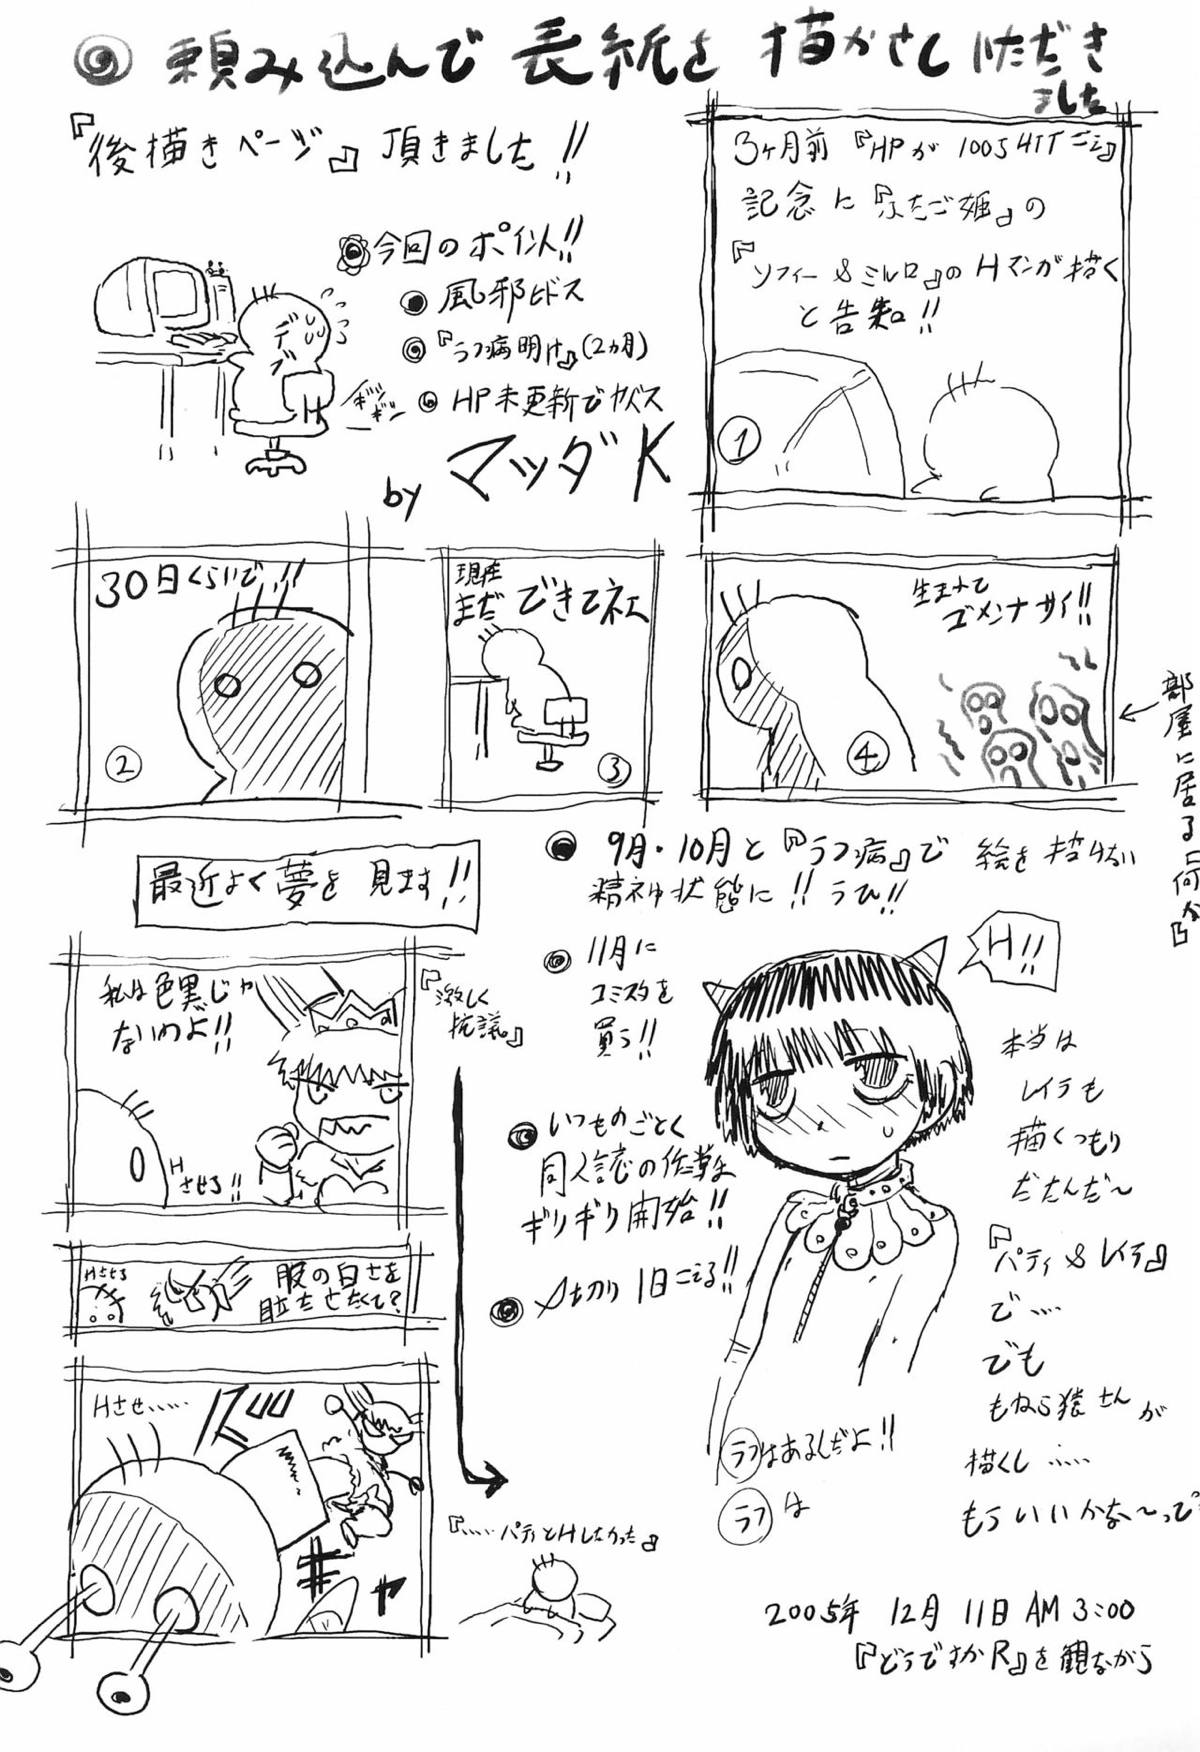 ◎ 頼み込んで 表紙を 描かさしいただき
ました
『後描きページ』頂きました!!
今回のポイント!!
風邪ヒドス
『ラフ病明け』(2カ月)
HP未更新でヤバス
デブ
ギシギシ
by マツダK
3ヶ月前『HPが 100SHIT ごえ』
記念に『ふたご姫』の
『ソフィー&ミルロ』のHマンガ描く
と告知!!
①
30日くらいで!!
②
現在
まだ できてネェ
③
生まれて
ゴメンナサイ!!
④
部屋に居る『何か』
最近よく夢を見ます!!
私は色黒じゃ
ないわよ!!
『激しく
抗議。』
Hさせろ!!
Hさせろ
服の白さを
目立たせたくて?
Hさせ……
『……パティとHしたかった』
9月・10月と『ラフ病』で 絵を描けない
精神状態に!! うひ!!
11月に
コミスタを
買う!!
いつものごとく
同人誌の作業は
ギリギリ開始!!
〆切り 1日ごえる!!
H!!
本当は
レイラも
描くつもり
だたんだ〜
『パティ&レイラ』
で……
でも
もねら猿さんが
描くし……
もういいかな〜って
ラフはあるんだよ!!
ラフは
2005年 12月 11日 AM 3:00
『どうですかR』を観ながら